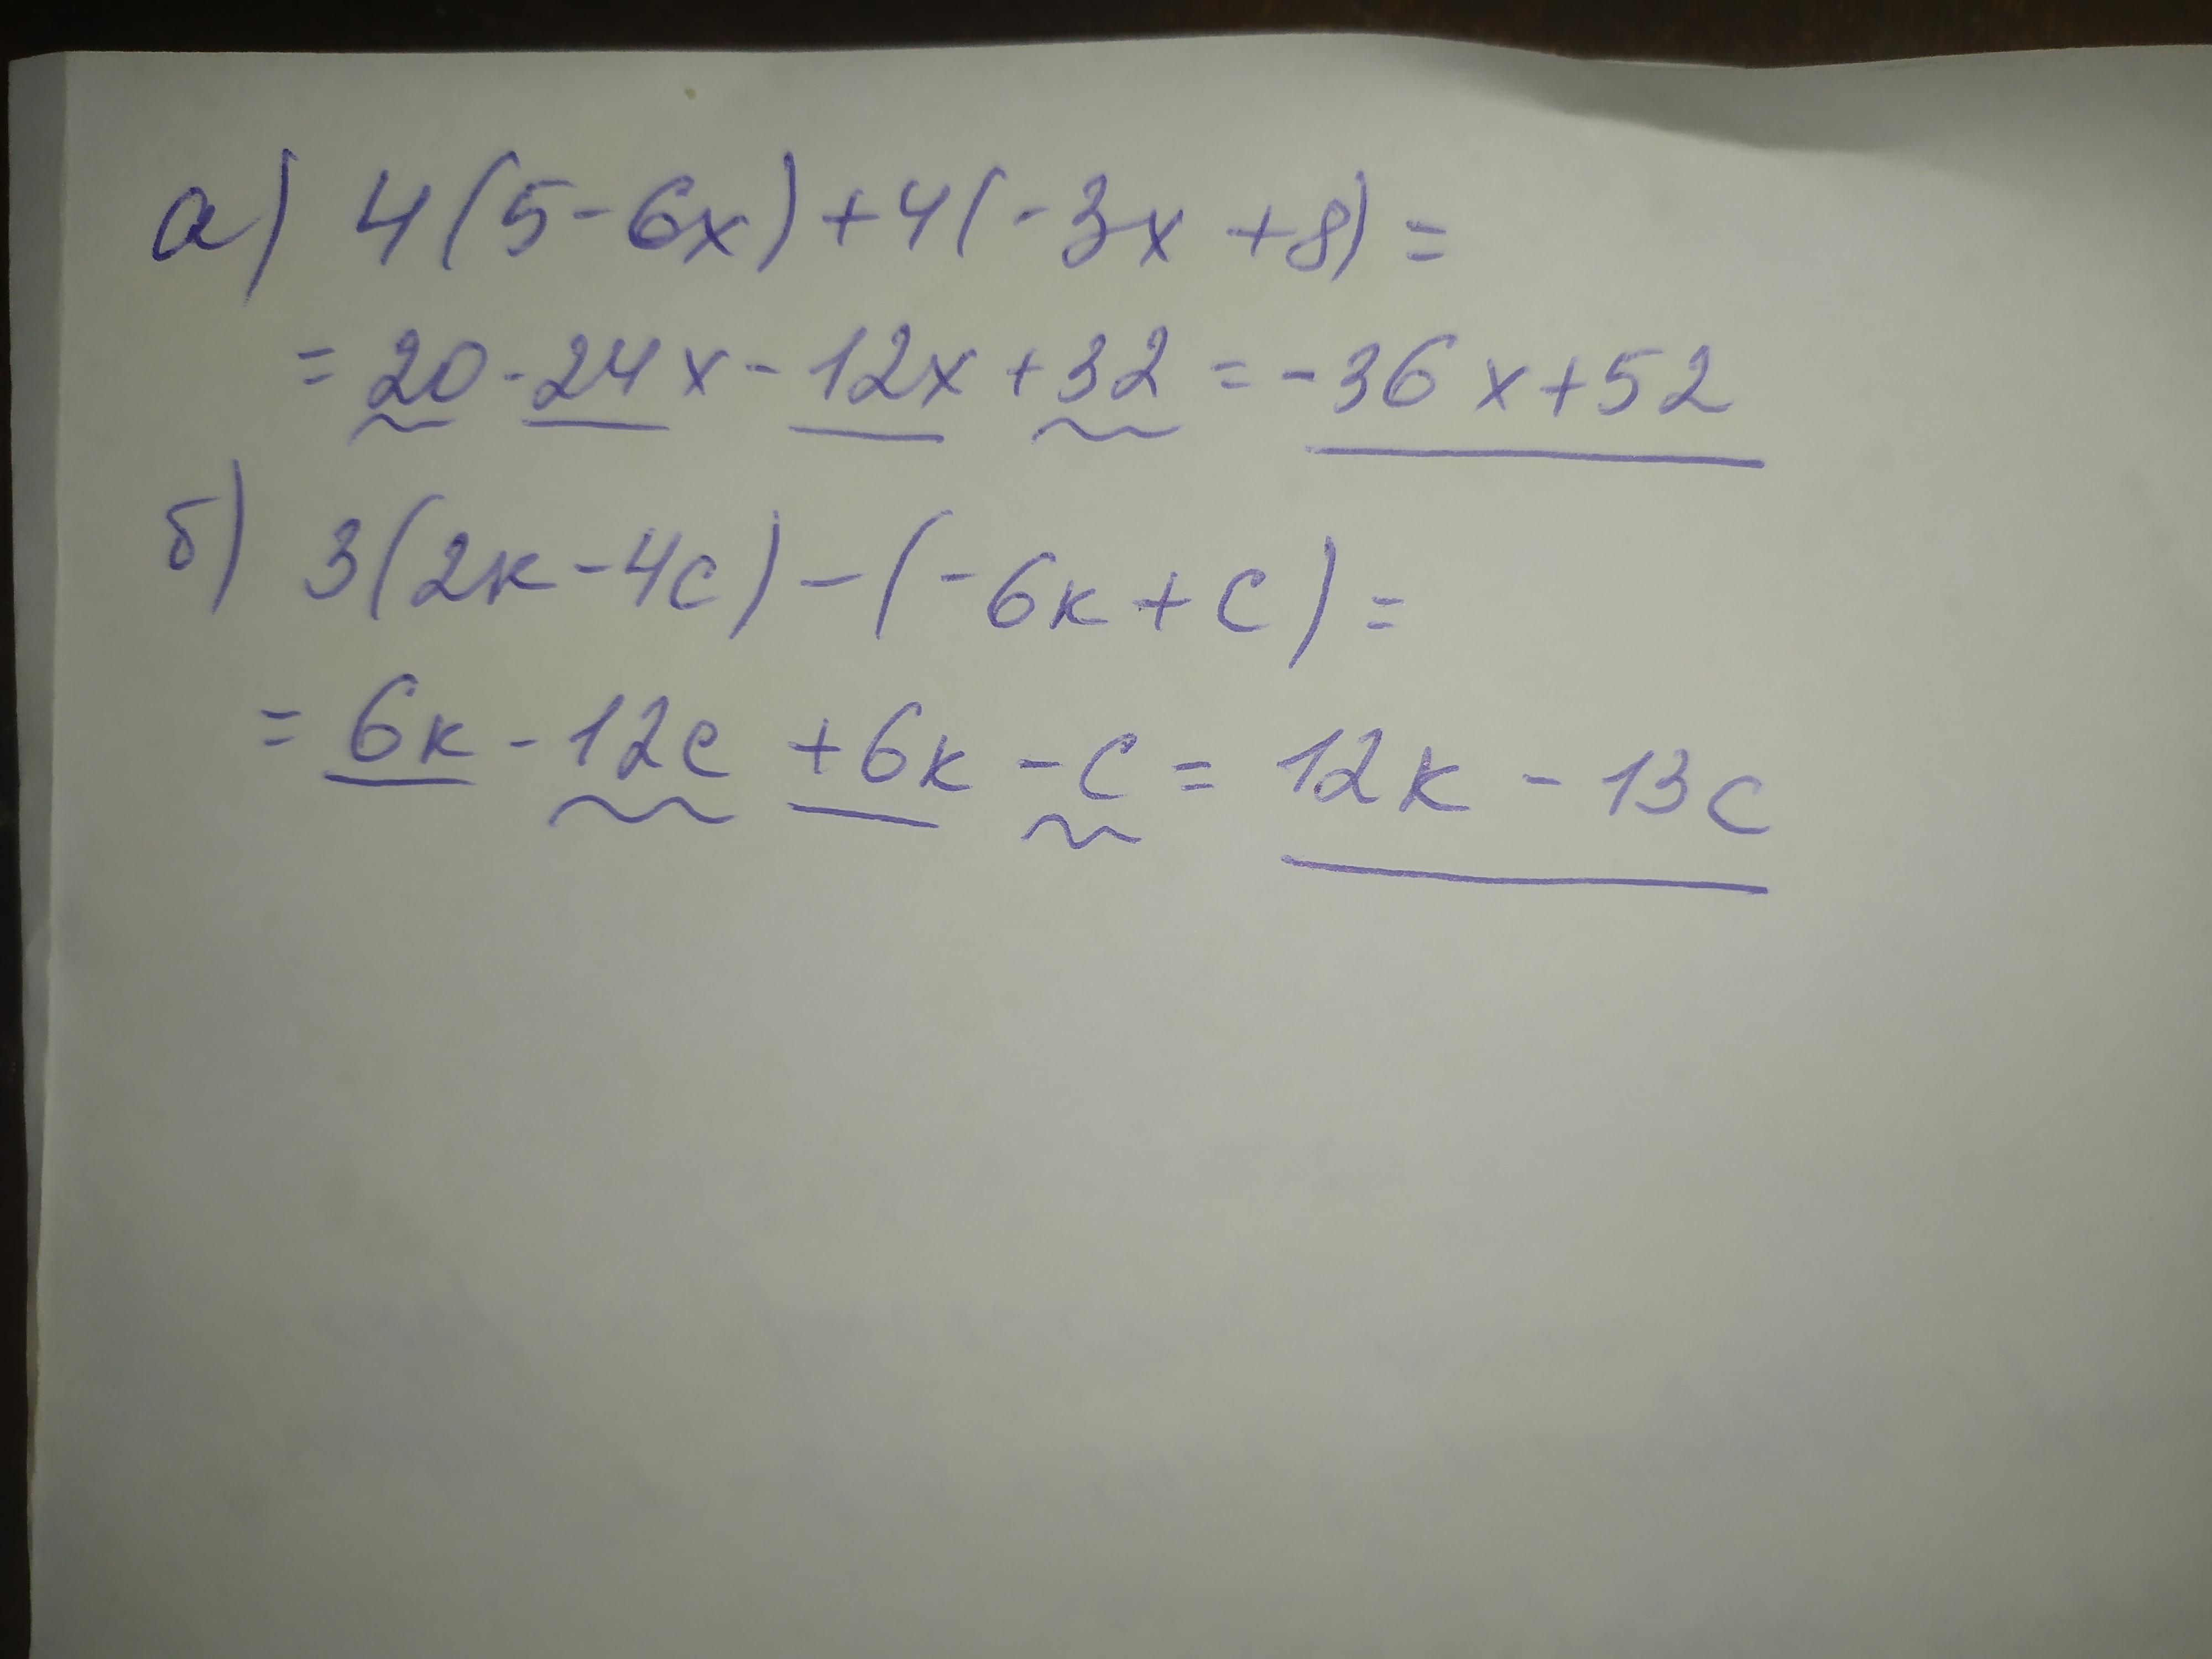 а) 4(5-6x)+4(-3x+8)=
=20-24x-12x+32=-36x+52
б) 3(2к-4с)-(-6к+с)=
=6к-12с+6к-с=12к-13с